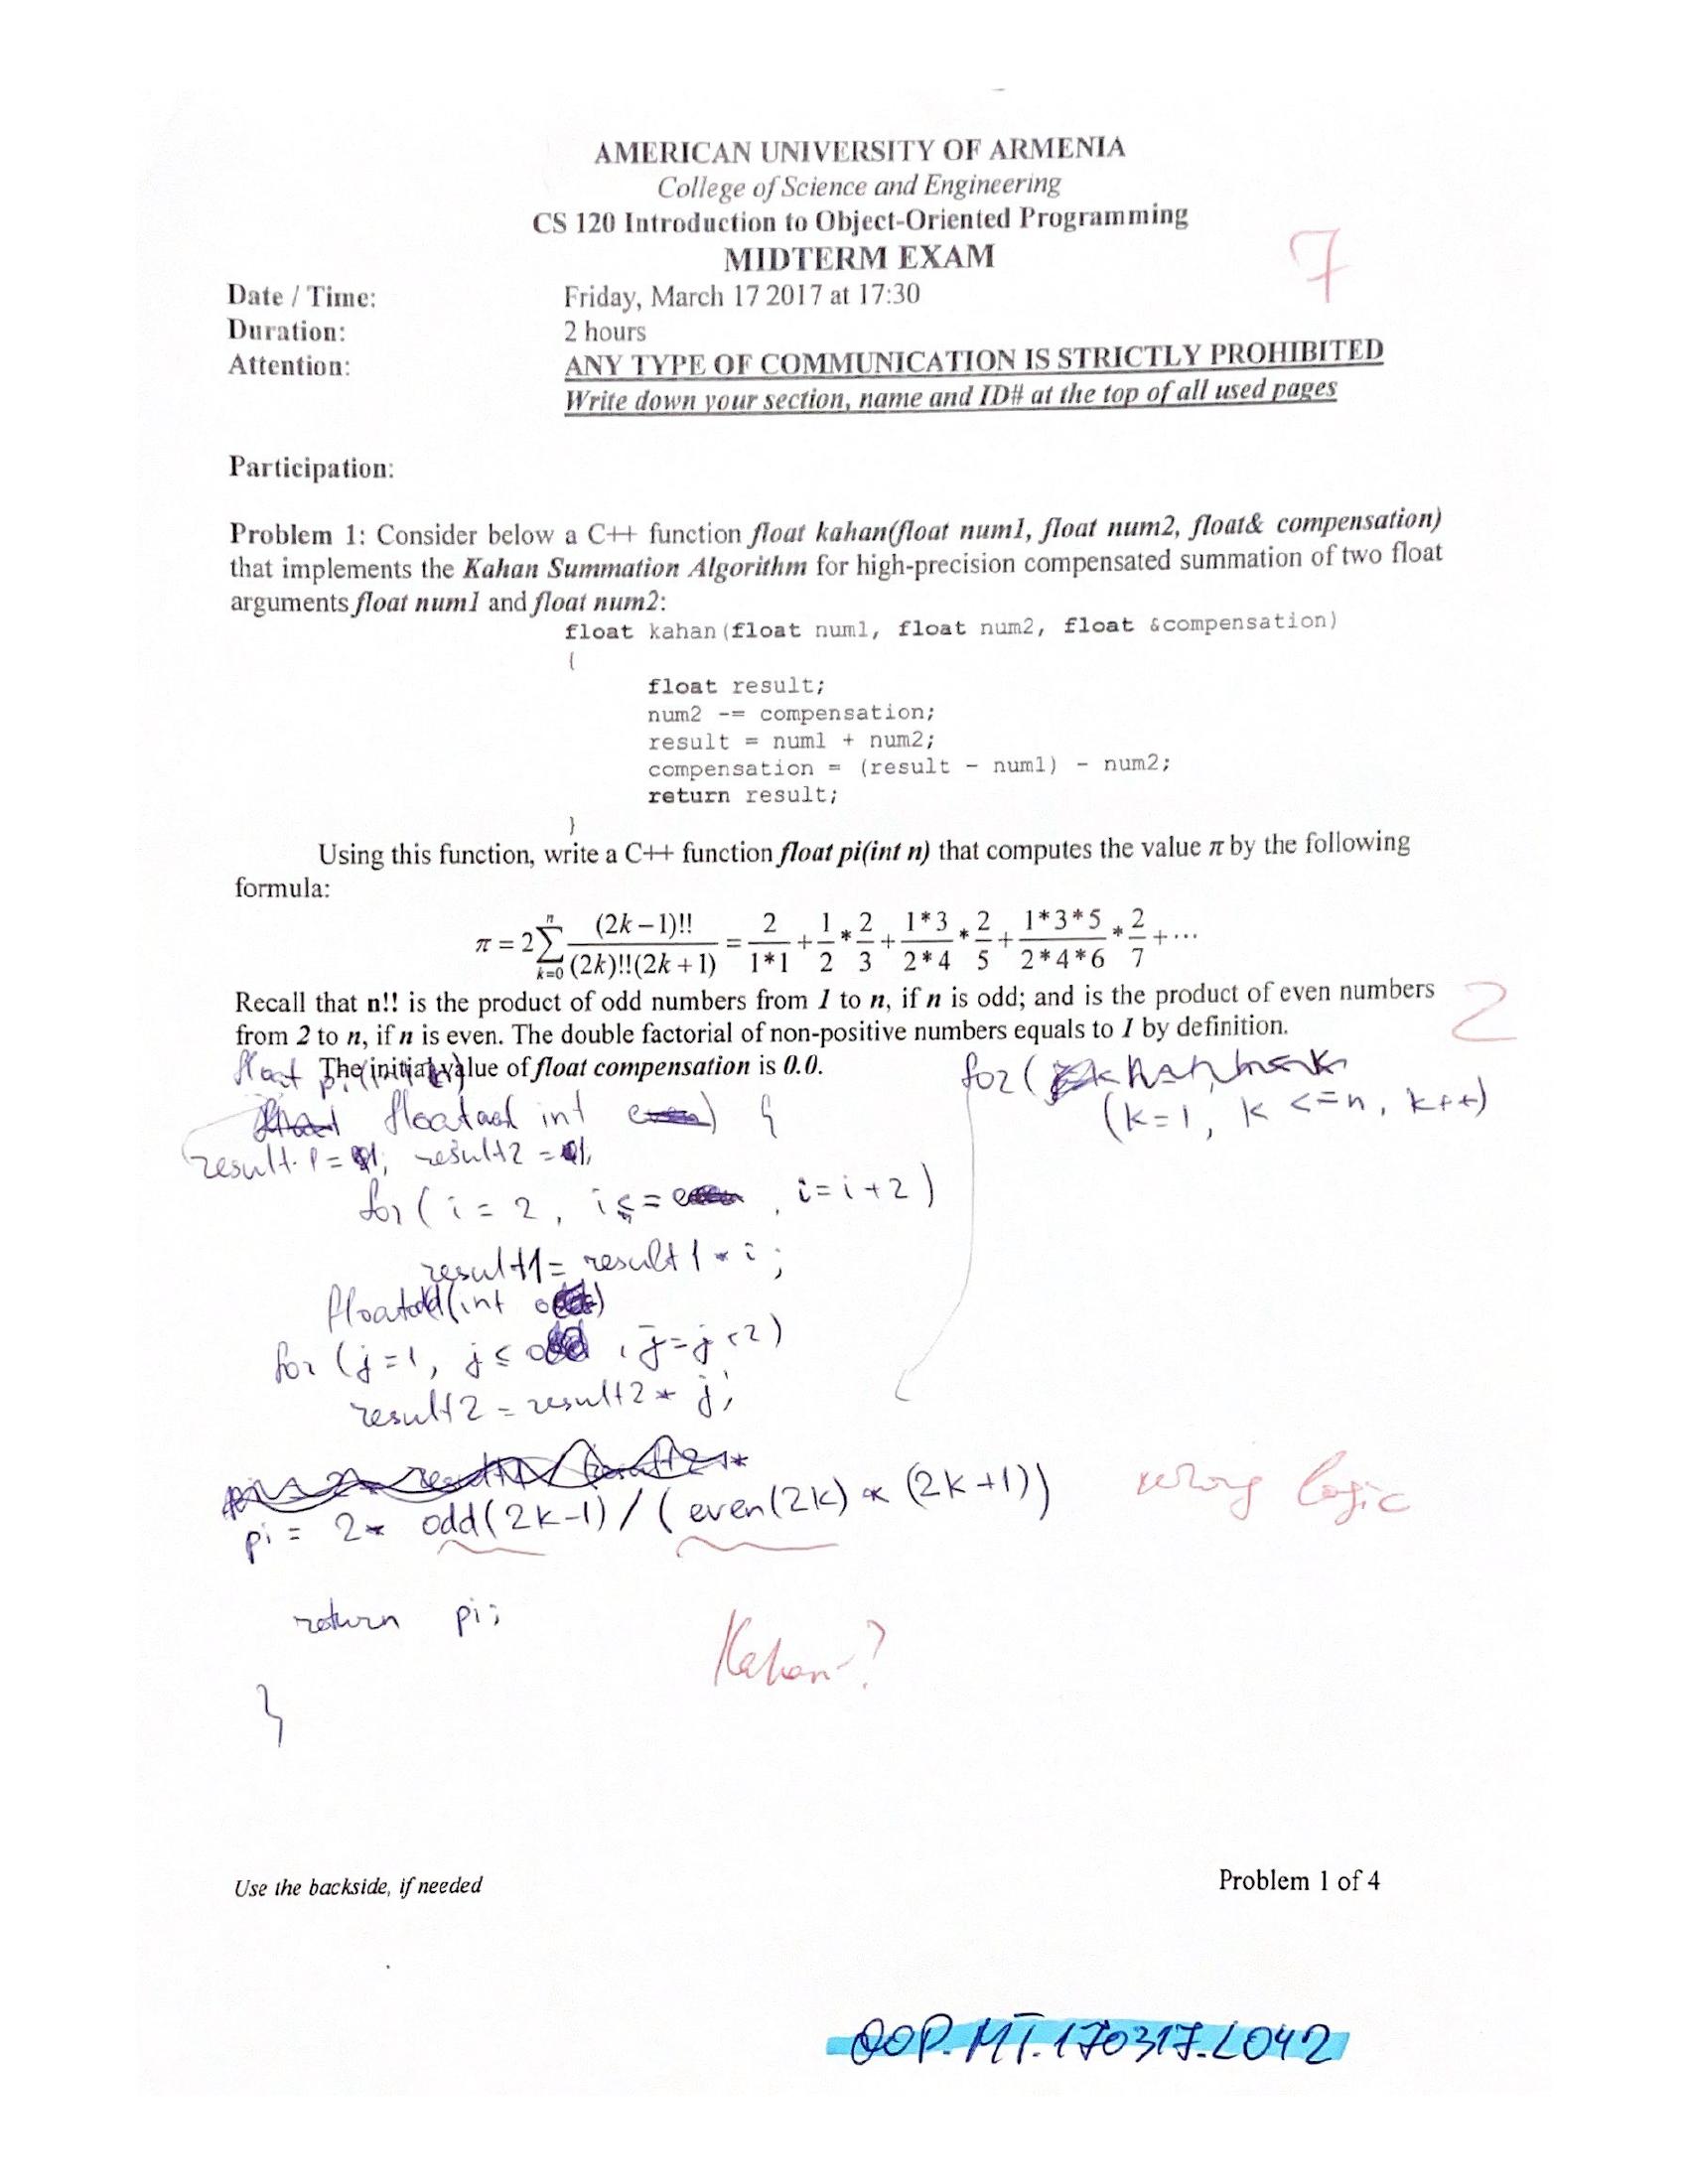 AMERICAN UNIVERSITY OF ARMENIA
College of Science and Engineering
CS 120 Introduction to Object-Oriented Programming
MIDTERM EXAM
7
Date / Time: Friday, March 17 2017 at 17:30
Duration: 2 hours
Attention: ANY TYPE OF COMMUNICATION IS STRICTLY PROHIBITED
Write down your section, name and ID# at the top of all used pages
Participation:
Problem 1: Consider below a C++ function float kahan(float num1, float num2, float& compensation)
that implements the Kahan Summation Algorithm for high-precision compensated summation of two float
arguments float num1 and float num2:
float kahan(float num1, float num2, float &compensation)
{
float result;
num2 -= compensation;
result = num1 + num2;
compensation = (result - num1) - num2;
return result;
}
Using this function, write a C++ function float pi(int n) that computes the value π by the following
formula:
π = 2 ∑_{k=0}^{n} (2k – 1)!! / ((2k)!!(2k + 1)) = 2/(1*1) + 1/2 * 2/3 + (1*3)/(2*4) * 2/5 + (1*3*5)/(2*4*6) * 2/7 + ⋯
Recall that n!! is the product of odd numbers from 1 to n, if n is odd; and is the product of even numbers
from 2 to n, if n is even. The double factorial of non-positive numbers equals to 1 by definition.
2
The initial value of float compensation is 0.0.
float pi(int
for (
int ) {
(k=1, k <=n, k++)
result1 = 1; result2 = 1;
for ( i = 2, i <= , i = i + 2 )
result1 = result1 * i ;
(int
for (j = 1, j ≤ , j = j + 2)
result2 = result2 * j;
pi = 2 * odd(2k-1) / ( even(2k) * (2k+1))
wrong logic
return pi;
Kahan?
}
Use the backside, if needed
Problem 1 of 4
OOP.MT.170317.L042